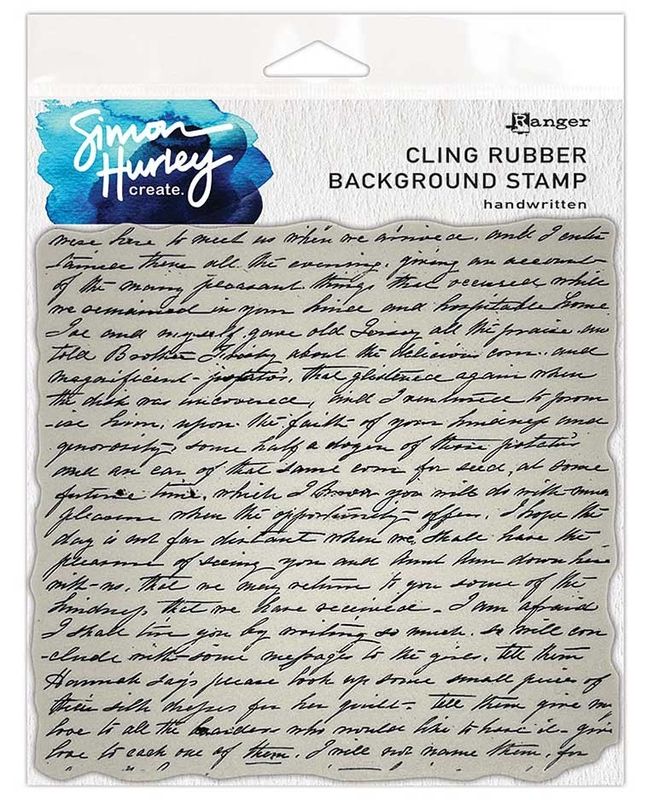 Simon
Hurley
create.
Ranger
CLING RUBBER
BACKGROUND STAMP
handwritten
were here to meet us when we arrived, and I enter
them all the evening, giving an account
of the many pleasant things that occured while
we remained in your house and hospitable home
I've and myself gave old Jersey all the praise
told Brother about the delicious corn and
magnificent potato's, that glistened again when
the dish was uncovered, and I ventured to prom
-ise him, upon the faith of your kindness and
generosity, some half a dozen of those potato's
and an ear of that same corn for seed, at some
future time, which I know you will do with much
pleasure when the opportunity offers. I hope the
day is not far distant when we shall have the
pleasure of seeing you and Aunt Ann down here
with us, that we may return to you some of the
kindness that we have received - I am afraid
I shall tire you by writing so much, so will con
-clude with some messages to the girls, tell them
Hannah says please look up some small pieces of
their silk dresses for her quilt - tell them give my
love to all the who would like to have it - give
love to each one of them, I will not name them, for